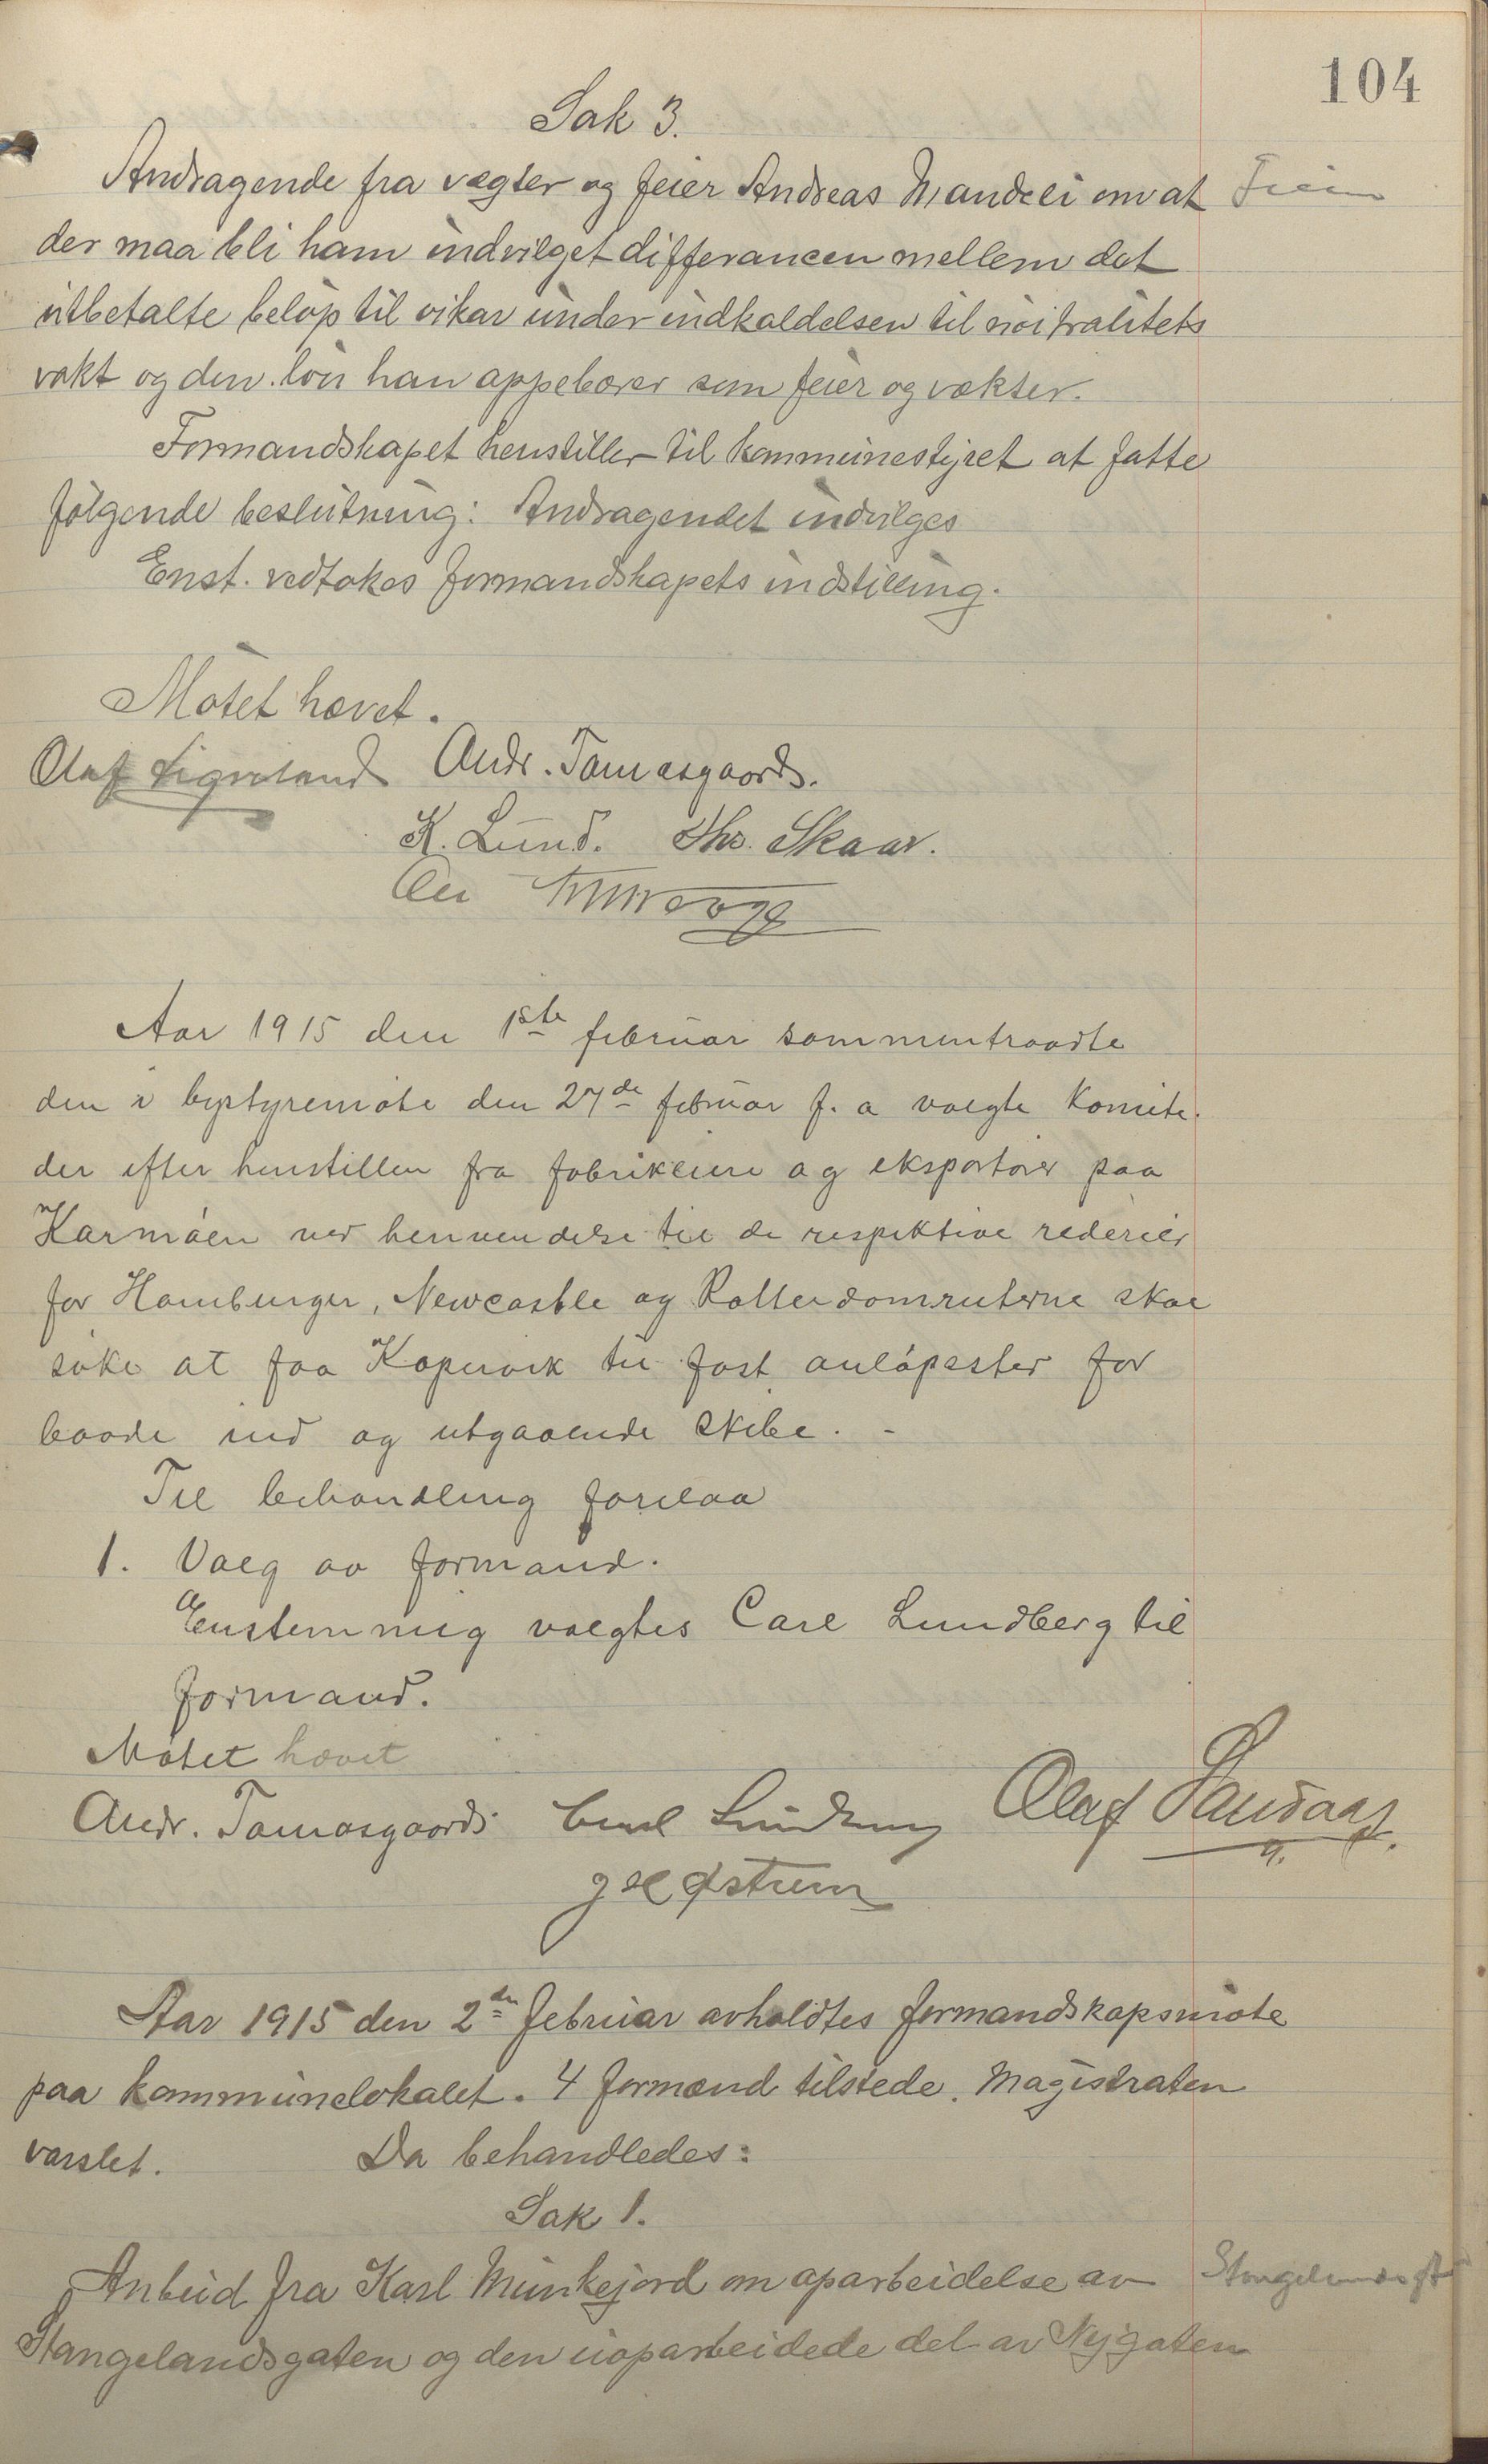 104
Sak 3.
Andragende fra vægter og feier Andreas Mandeli om at
Feier
der maa bli ham indvilget differancen mellem det
utbetalte beløp til vikar under indkaldelsen til nøitralitets
vakt og den løn han oppebærer som feier og vækter.
Formandskapet henstiller til kommunestyret at fatte
følgende beslutning: Andragendet indvilges
Enst. vedtokes formandskapets indstilling.
Møtet hævet.
Olaf Andr. Tamasgaards.
K. Lund. Ths. Skaar.
Aar 1915 den 1ste februar sammentraadte
den i bystyremøte den 27de februar f. a valgte komite.
der efter henstillen fra fabrikeiere og eksportører paa
Karmøen ved henvendelse til de respektive rederier
for Hamburger, Newcastle og Rotterdamruterne skal
søke at faa Kopervik til fast anløpsster for
baade ind og utgaaende skibe. -
Til behandling forelaa
1. Valg av formand.
Enstemmig valgtes Carl Lundberg til
formand.
Møtet hævet
Andr. Tamasgaards Carl Lundberg Olaf Sandaas
Østrem
Aar 1915 den 2den februar avholdtes formandskapsmøte
paa kommunelokalet. 4 formænd tilstede. Magistraten
varslet. Da behandledes:
Sak 1.
Anbud fra Karl Munkejord om oparbeidelse av
Stangelandsgt
Stangelandsgaten og den uoparbeidede del av Nygaten